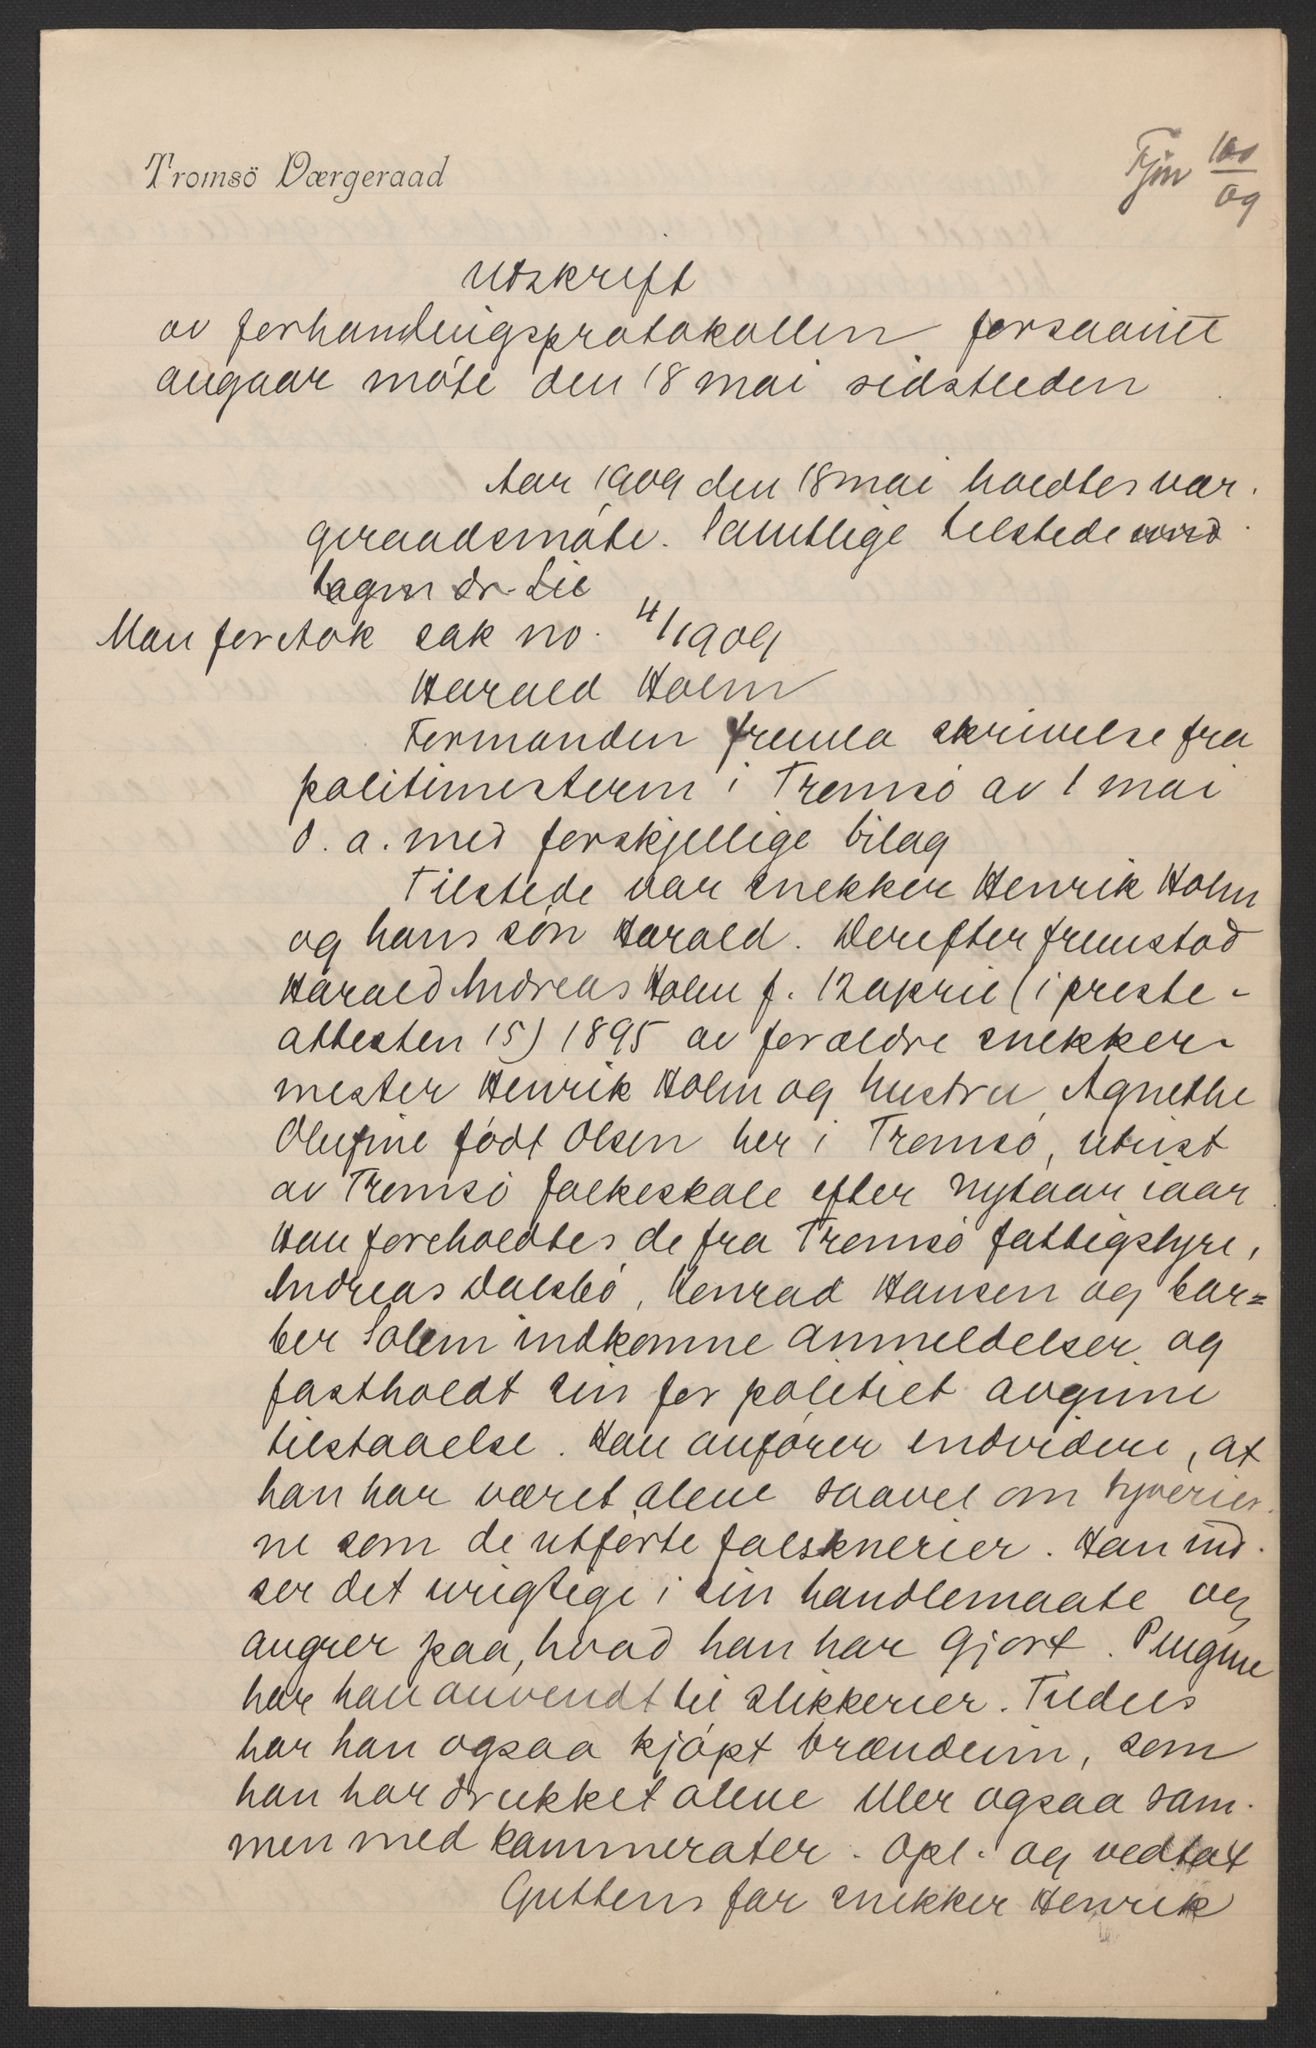 Tromsö Værgeraad
Fjm 100/09
Utskrift
av forhandlingsprotokollen forsaavitt
angaar møte den 18 mai sidstleden
Aar 1909 den 18 mai holdtes vær-
geraadsmøte. Samtlige tilstede
Man foretok sak no. 4/1909
Harald Holm
Formanden fremla skrivelse fra
politimesteren i Tromsø av 1 mai
d. a. med forskjellige bilag
Tilstede var snekker Henrik Holm
og hans søn Harald. Derefter fremstod
Harald Andreas Holm f. 12 april (i preste-
attesten 15) 1895 av forældre snekker-
mester Henrik Holm og hustru Agnethe
Olufine født Olsen her i Tromsø, utvist
av Tromsø folkeskole efter nytaar iaar
Han foreholdtes de fra Tromsø fattigstyre,
Andreas Dalsbø, Konrad Hansen og bar=
ber Solem indkomne anmeldelser og
fastholdt sin for politiet avgivne
tilstaaelse. Han anfører endvidere, at
han har været alene saavel om tyverier-
ne som de utførte falsknerier. Han ind-
ser det urigtige i sin handlemaate og
angrer paa, hvad han har gjort. Pengene
har han anvendt til slikkerier. Tildels
har han ogsaa kjøpt brændevin, som
han har drukket alene eller ogsaa sam-
men med kammerater. Opl. og vedtat
Guttens far snekker Henrik